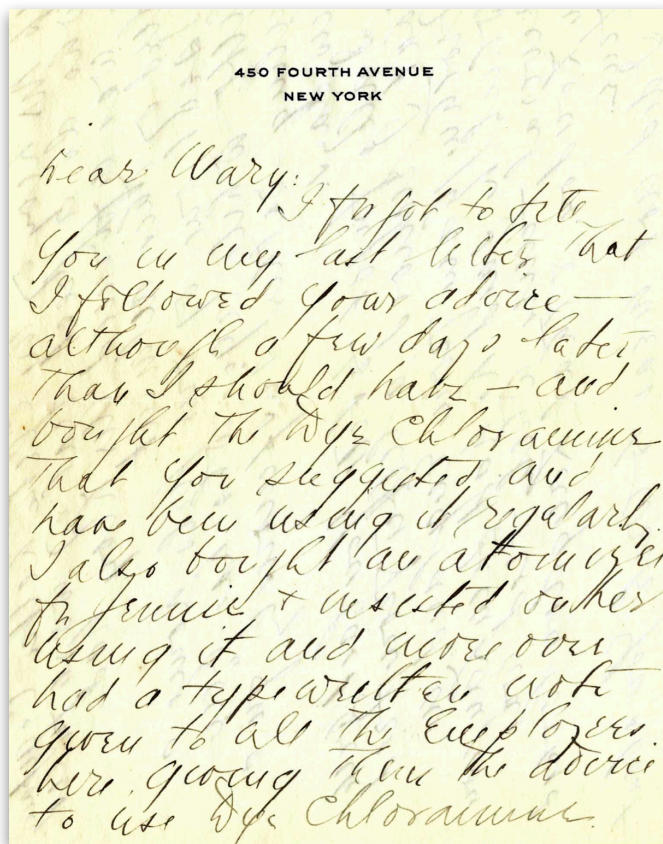 450 FOURTH AVENUE
NEW YORK
Dear Mary:
I forgot to tell
you in my last letter that
I followed your advice —
although a few days later
than I should have — and
bought the Dye Chloramine
that you suggested and
have been using it regularly.
I also bought an atomizer
for Jennie + insisted on her
using it and more over
had a typewritten note
given to all the Employees
here giving them the advice
to use Dye Chloramine.